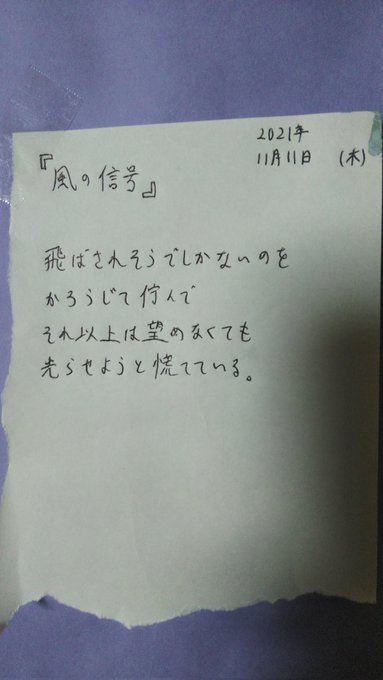 2021年
11月11日 (木)
『風の信号』
飛ばされそうでしかないのを
かろうじて佇んで
それ以上は望めなくても
光らせようと慌てている。